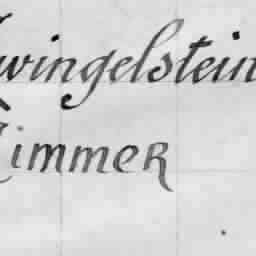 wingelstein
Zimmer